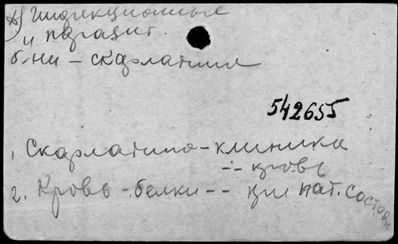 А) Инфекционные
и паразит.
б-ни - скарлатина
542655
1. Скарлатина - клиника
-:- кровь
2. Кровь - белки -- при пат. состоян